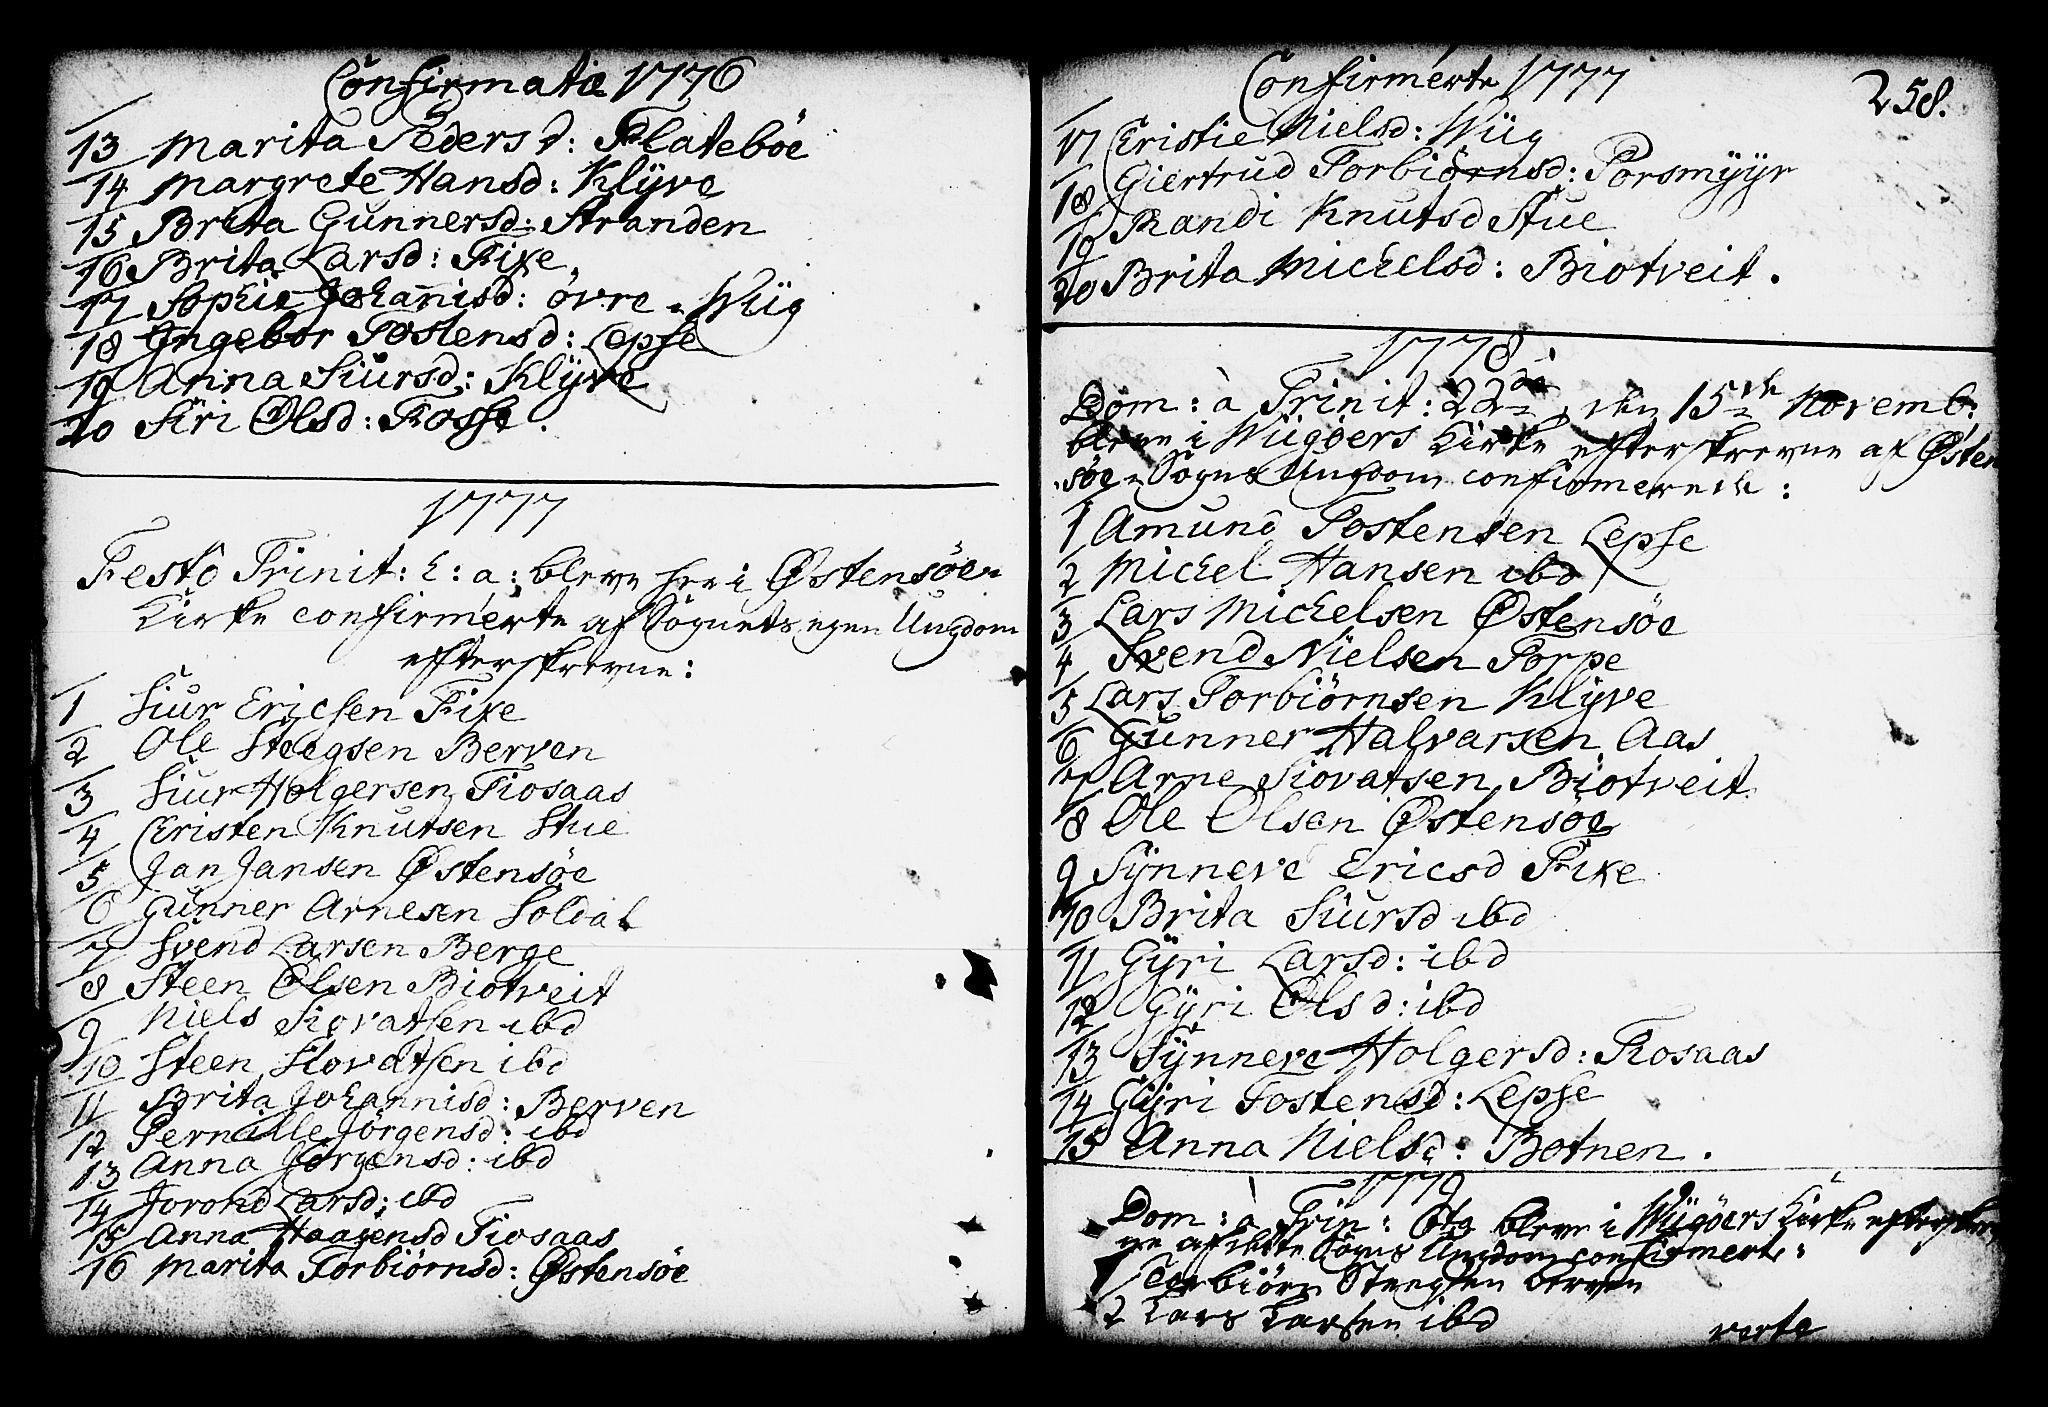 Confirmatæ 1776
13 Marita Peders d: Flatebøe
14 Margrete Hansd: Klÿve
15 Brita Gunnersd: Stranden
16 Brita Larsd: Fixe
17 Sophie Johanisd: øvre Wiig
18 Ingebor Tostensd: Lepse
19 Anna Siursd: Klÿve
20 Siri Olsd: Fosse.
1777
Festô Trinit: h: a: bleve her i Østensöe
Kirke confirmerte af Sognets egen Ungdom
efterskrevne:
1 Siur Ericsen Fixe
2 Ole Steegsen Berven
3 Siur Holgersen Fiosaas
4 Christen Knutsen Stue
5 Jan Jansen Østensöe
6 Gunner Arnesen Soldal
7 Svend Larsen Berge
8 Steen Olsen Biotveit
9 Niels Siovatsen ibd
10 Steen Siovatsen ibd
11 Brita Johannisd: Berven
12 Pernille Jörgensd: ibd
13 Anna Jörgensd: ibd
14 Jorond Larsd: ibd
15 Anna Haagensd Fiosaas
16 Marita Torbiörnsd: Østensöe
Confirmerte 1777
258.
17 Cristie Nielsd: Wiig
18 Giertrud Torbiörnsd: Porsmÿÿr
19 Randi Knutsd Stue
20 Brita Michelsd: Biotveit.
1778
Dom: à Trinit: 22da, den 15de Novemb:
bleve i Wiigöers Kirke efterskrevne af Østen
söe Sogns Ungdom confirmerede:
1 Amund Tostensen Lepse
2 Michel Hansen ibd
3 Lars Michelsen Østensöe
4 Svend Nielsen Torpe
5 Lars Torbiörnsen Klÿve
6 Gunner Halvarsen Aas
7 Arne Siovatsen Biotveit
8 Ole Olsen Østensöe
9 Sÿnneve Ericsd Fixe
10 Brita Siursd ibd
11 Gÿri Larsd: ibd
12 Gÿri Ols d: ibd
13 Sÿnneve Holgersd: Fiosaas
14 Gÿri Tostensd: Lepse
15 Anna Nielsd: Botnen.
1779
Dom: à Trin: 8ta bleve i Wiigöers Kirke efterskrev
ne af dette Sogns Ungdom confirmert:
1 Torbiörn Steegsen Berven
2 Lars Larsen ibd
verte